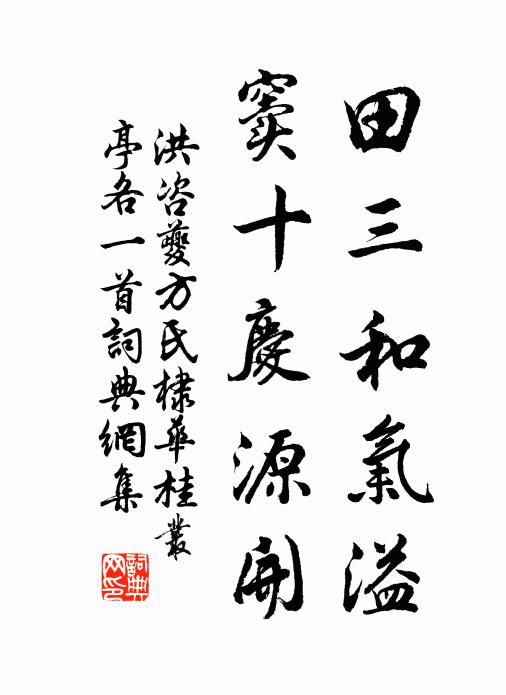 田三和氣溢
竇十慶源開
洪咨夔方氏棣華桂叢
亭各一首詞典網集
詞典网印